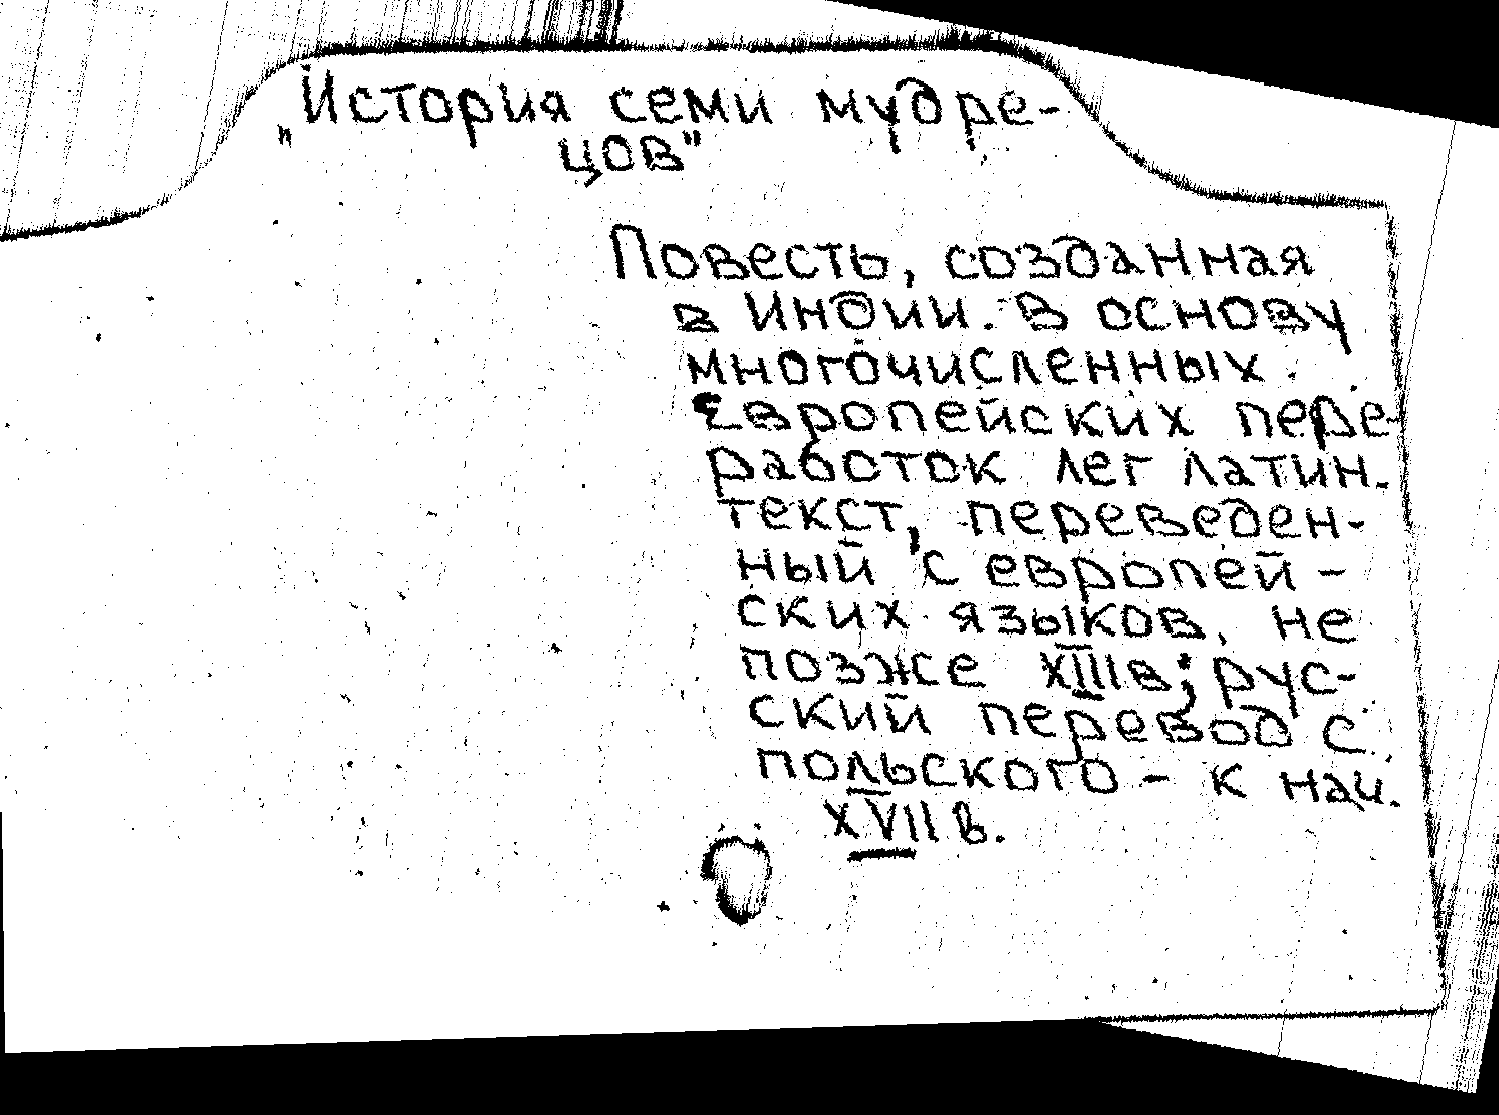 „История семи мудре-
цов"
Повесть, созданная
в Индии. В основу
многочисленных
европейских пере-
работок лег латин.
текст, переведен-
ный с европей-
ских языков, не
позже XIII в; рус-
ский перевод с
польского - к нач.
XVII в.